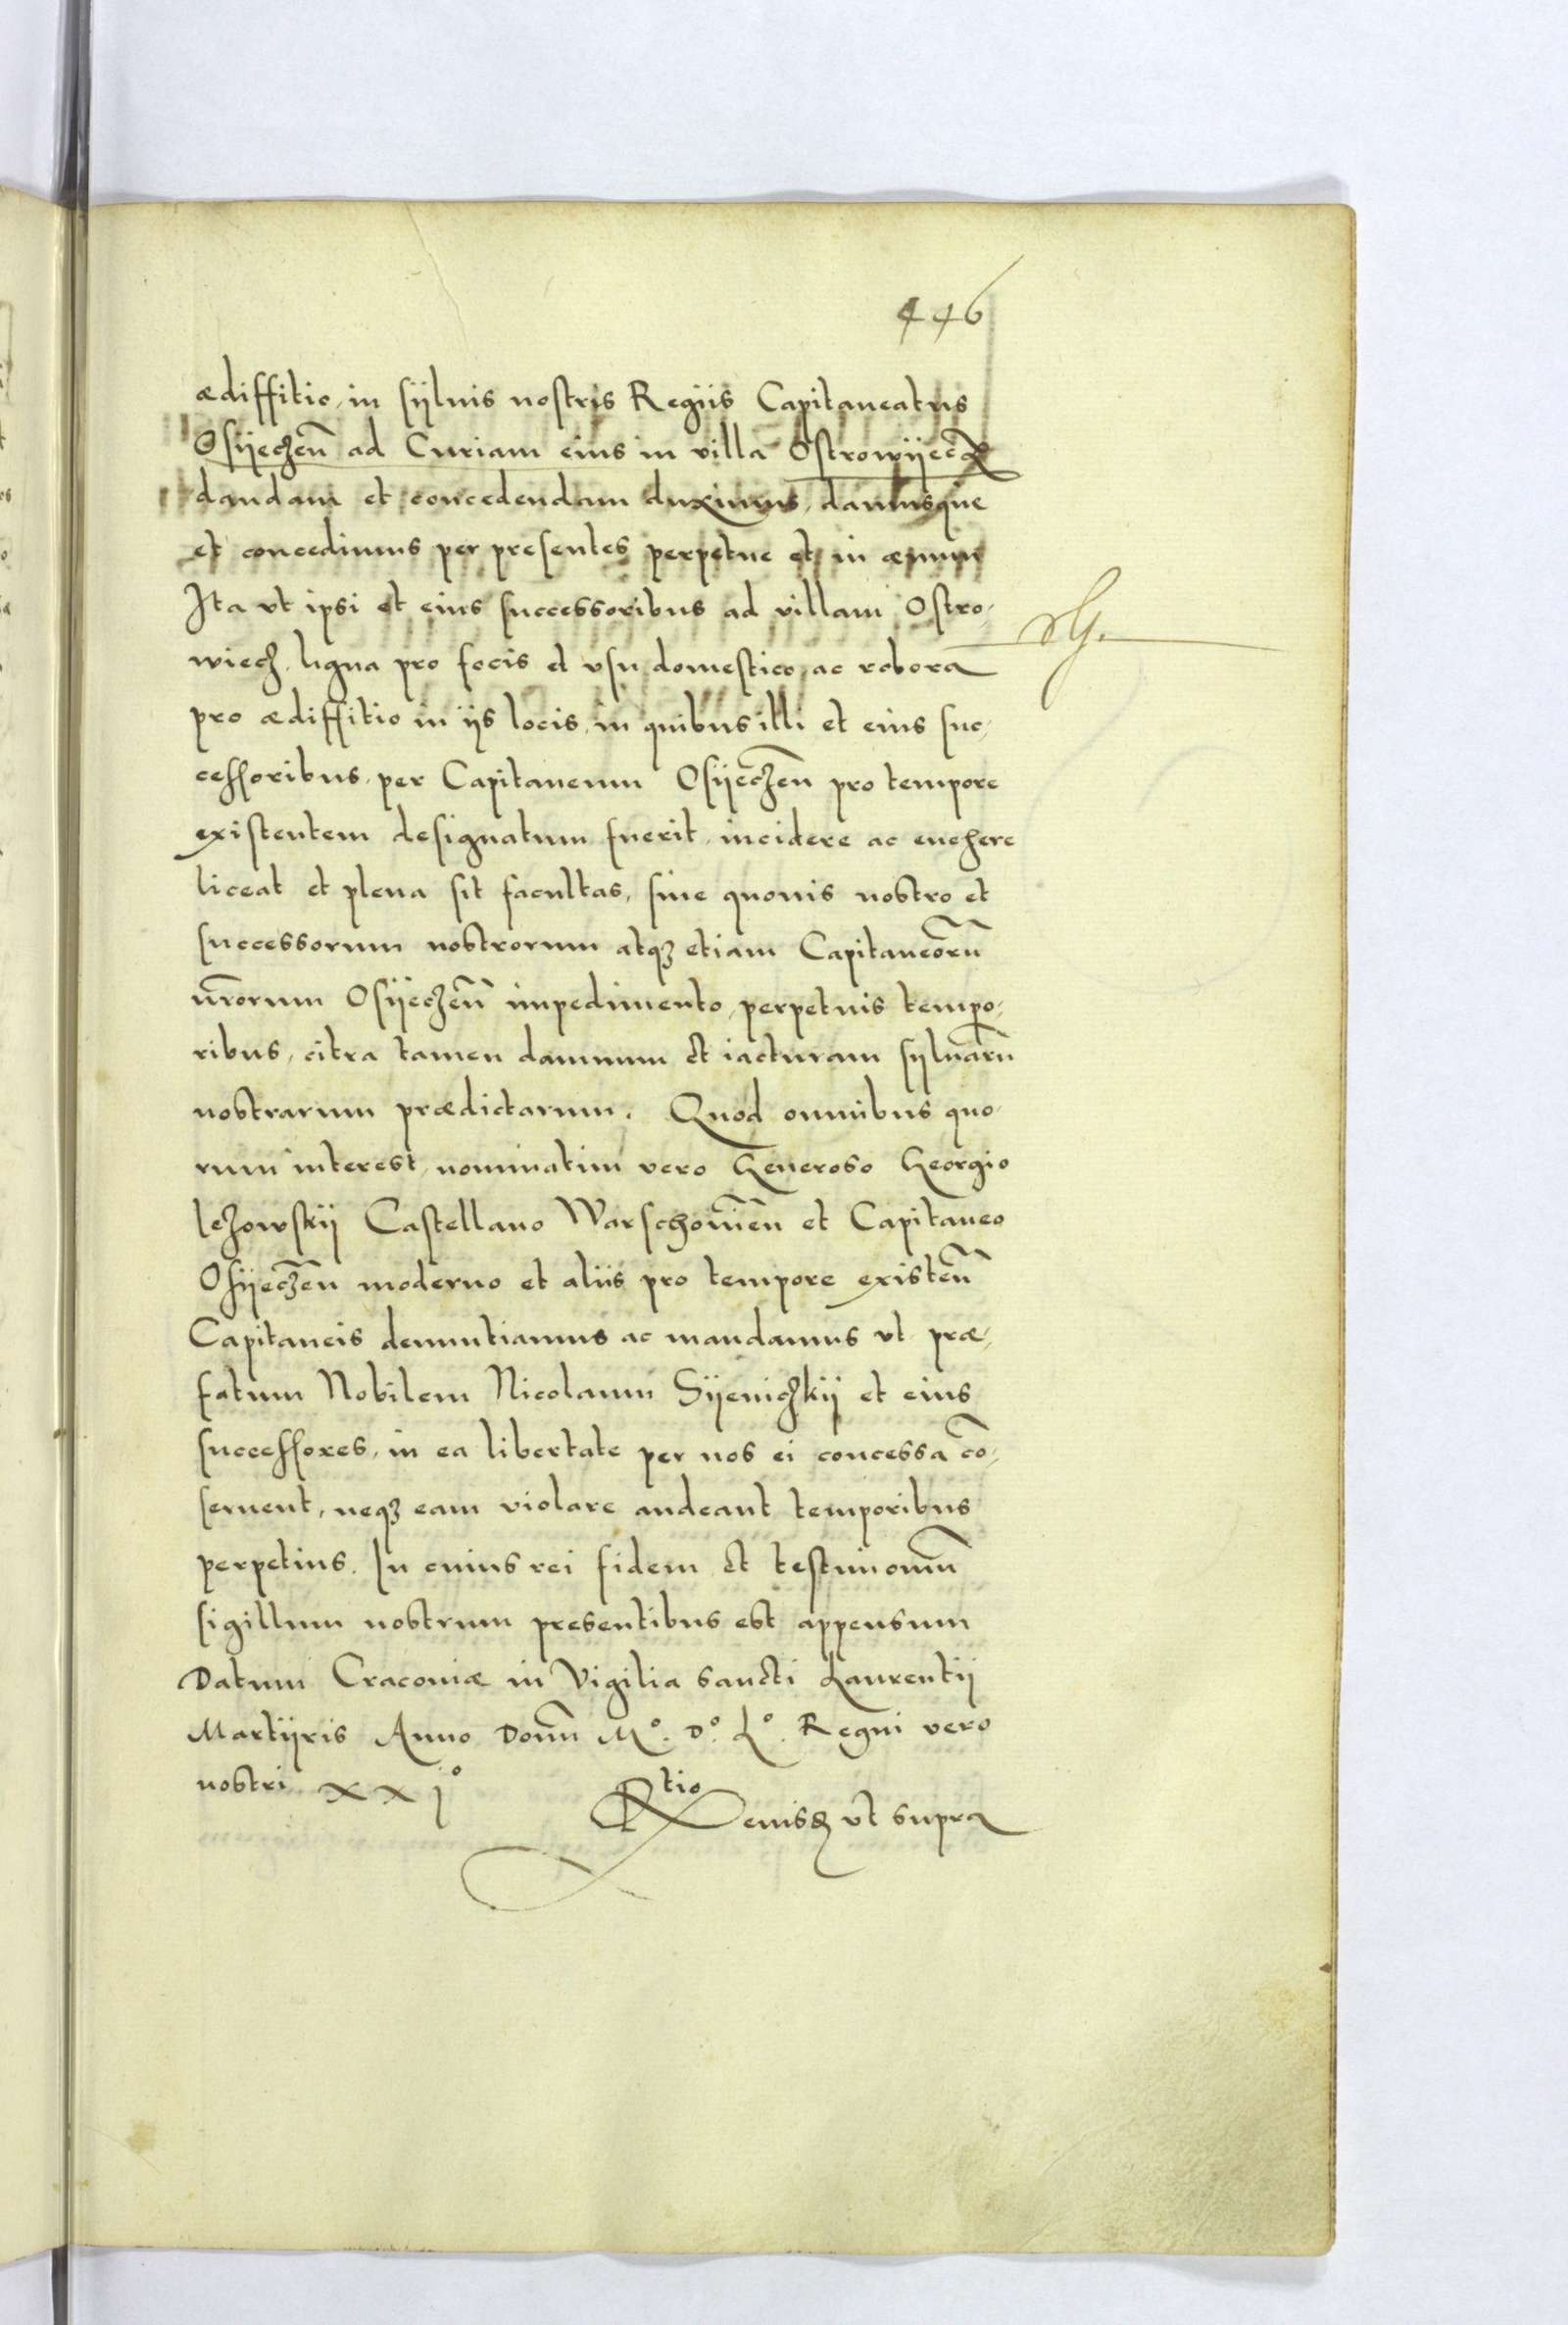 446
ædiffitio, in sÿluis nostris Regiis Capitaneatus
Osÿeczeñ ad Curiam eius in villa Ostrowÿecz
dandam et concedendam duximus, damusque
et concedimus per presentes perpetue et in æuum
Ita vt ipsi et eius successoribus ad villam Ostro,
wiecz, ligna pro focis et vsu domestico, ac robora
pro ædiffitio in ÿs locis, in quibus illi et eius suc,
cessoribus, per Capitaneum Osÿeczeñ pro tempore
existentem designatum fuerit, incidere ac euehere
liceat et plena sit facultas, sine quouis nostro et
successorum nostrorum atqꝫ etiam Capitaneorũ
nr̃orum Osÿeczeñ impedimento, perpetuis tempo,
ribus, citra tamen damnum et iacturam sÿluarũ
nostrarum prædictarum. Quod omnibus quo,
rum interest, nominatim vero Generoso Georgio
Iezowskÿ Castellano Warschouieñ et Capitaneo
Osÿeczeñ moderno et aliis pro tempore existeñ
Capitaneis denuntiamus ac mandamus vt præ,
fatum Nobilem Nicolaum Sÿeniczkÿ et eius
successores, in ea libertate per nos ei concessa cõ,
seruent, neqꝫ eam violare audeant temporibus
perpetius. In cuius rei fidem et testimoniũ
sigillum nostrum presentibus est appensum
Datum Cracouiæ in Vigilia sancti Laurentÿ
Martÿris Anno Domĩ Mº. Dº. Lº. Regni vero
nostri xxjº
Rtio eiusd ut supra